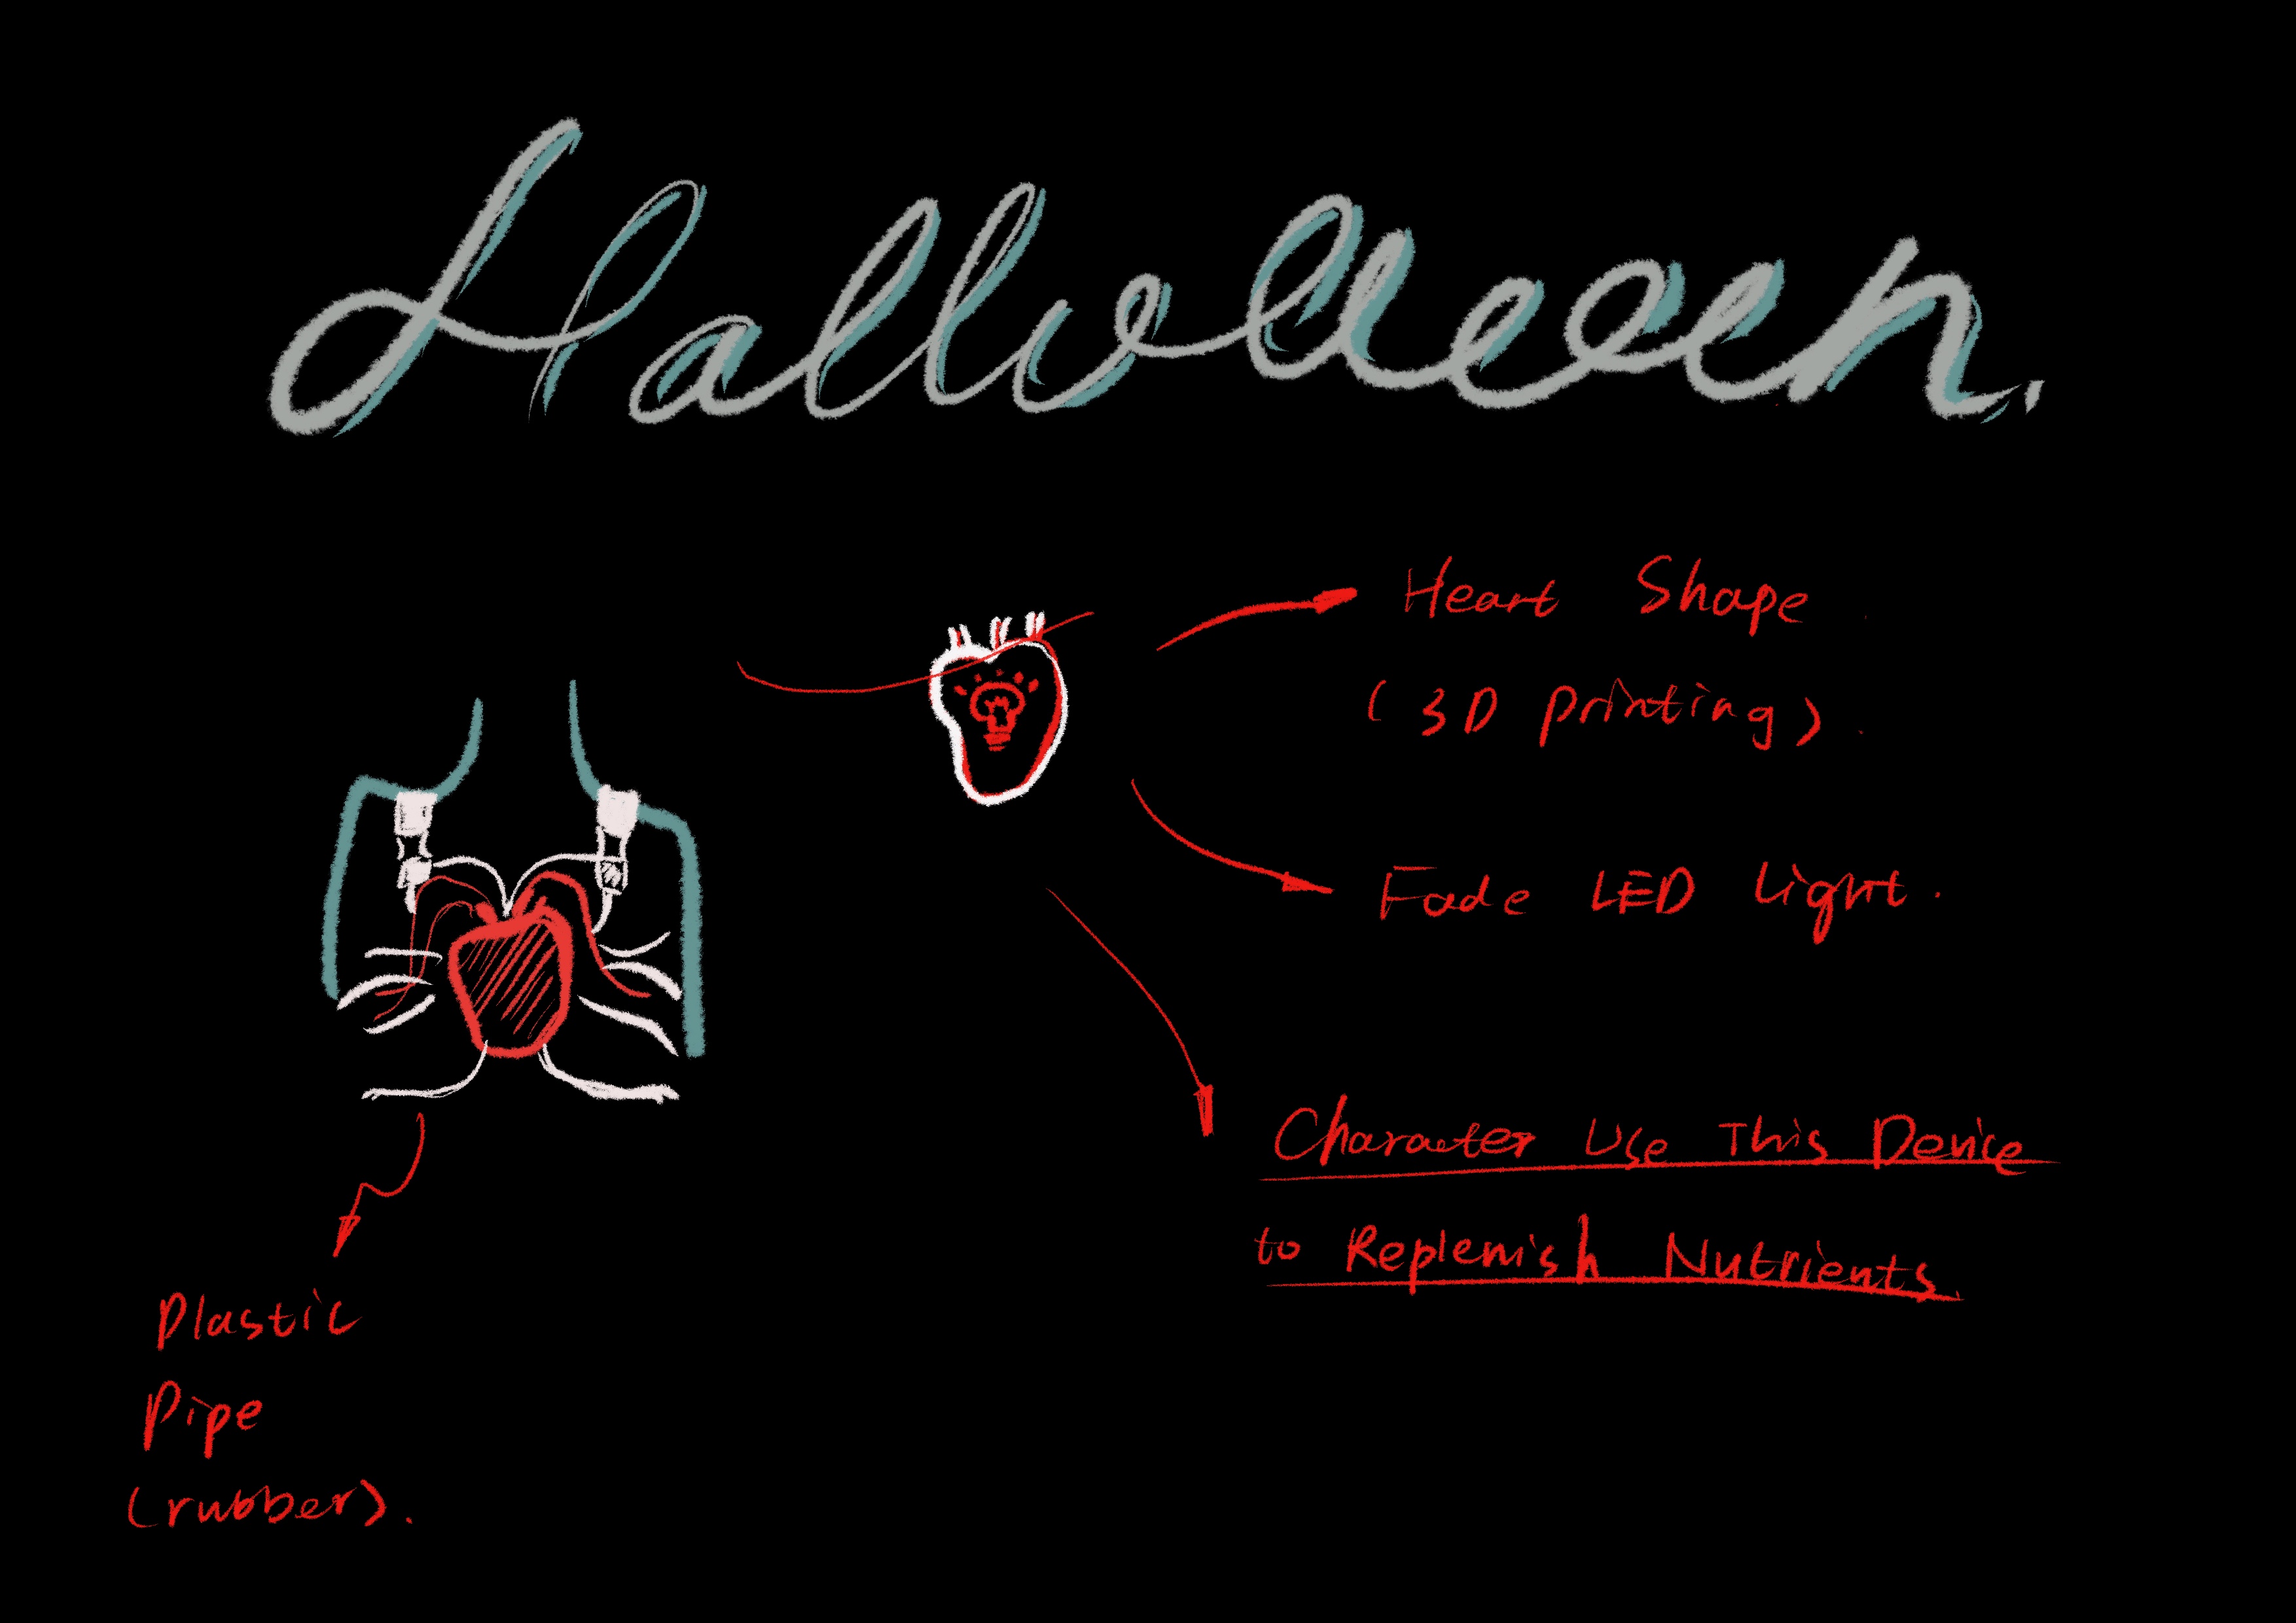 Halloween.
Heart Shape
(3D printing).
Fade LED Light.
Character Use This Device
to Replenish Nutrients.
Plastic
Pipe
(rubber).